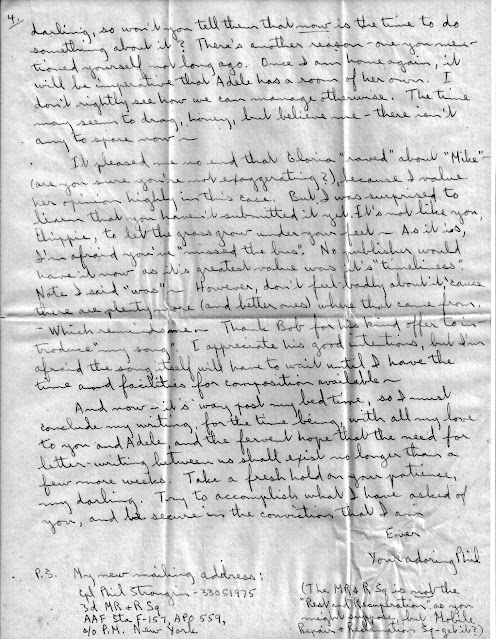 4.
darling, so won't you tell them that now is the time to do
something about it? There's another reason - one you men-
tioned yourself not long ago. Once I am home again, it
will be imperative that Adele has a room of her own. I
don't rightly see how we can manage otherwise. The time
may seem to drag, honey, but believe me - there isn't
any to spare now ~
It pleased me no end that Gloria "raved" about "Mike" -
(are you sure you're not exaggerating?), because I value
her opinion highly in this case. But I was surprised to
learn that you haven't submitted it yet. It's not like you,
Chippie, to let the grass grow under your feet ~ As it is,
I'm afraid you've "missed the bus". No publisher would
have it now as it's greatest value was it's "timeliness".
Note I said "was" ~ However, don't feel badly about it 'cause
there are plenty more (and better ones) where that came from.
- Which reminds me ~ Thank Bob for his kind offer to in-
troduce "my song". I appreciate his good intentions, but I'm
afraid the song itself will have to wait until I have the
time and facilities for composition available ~
And now - it's way past my bed time, so I must
conclude my writing, for the time being, with all my love
to you and Adele, and the fervent hope that the need for
letter-writing between us shall exist no longer than a
few more weeks. Take a fresh hold on your patience,
my darling. Try to accomplish what I have asked of
you, and be secure in the conviction that I am
Ever
Your adoring Phil
P.S. My new mailing address:
Cpl Phil Strongin - 33051975
3d MR & R Sq
AAF Sta F-157, APO 559,
c/o P.M. New York
(The MR & R Sq is not the
"Rest and Recuperation" as you
might suppose, but Mobile
Repair & Reclamation Sq - get it?)